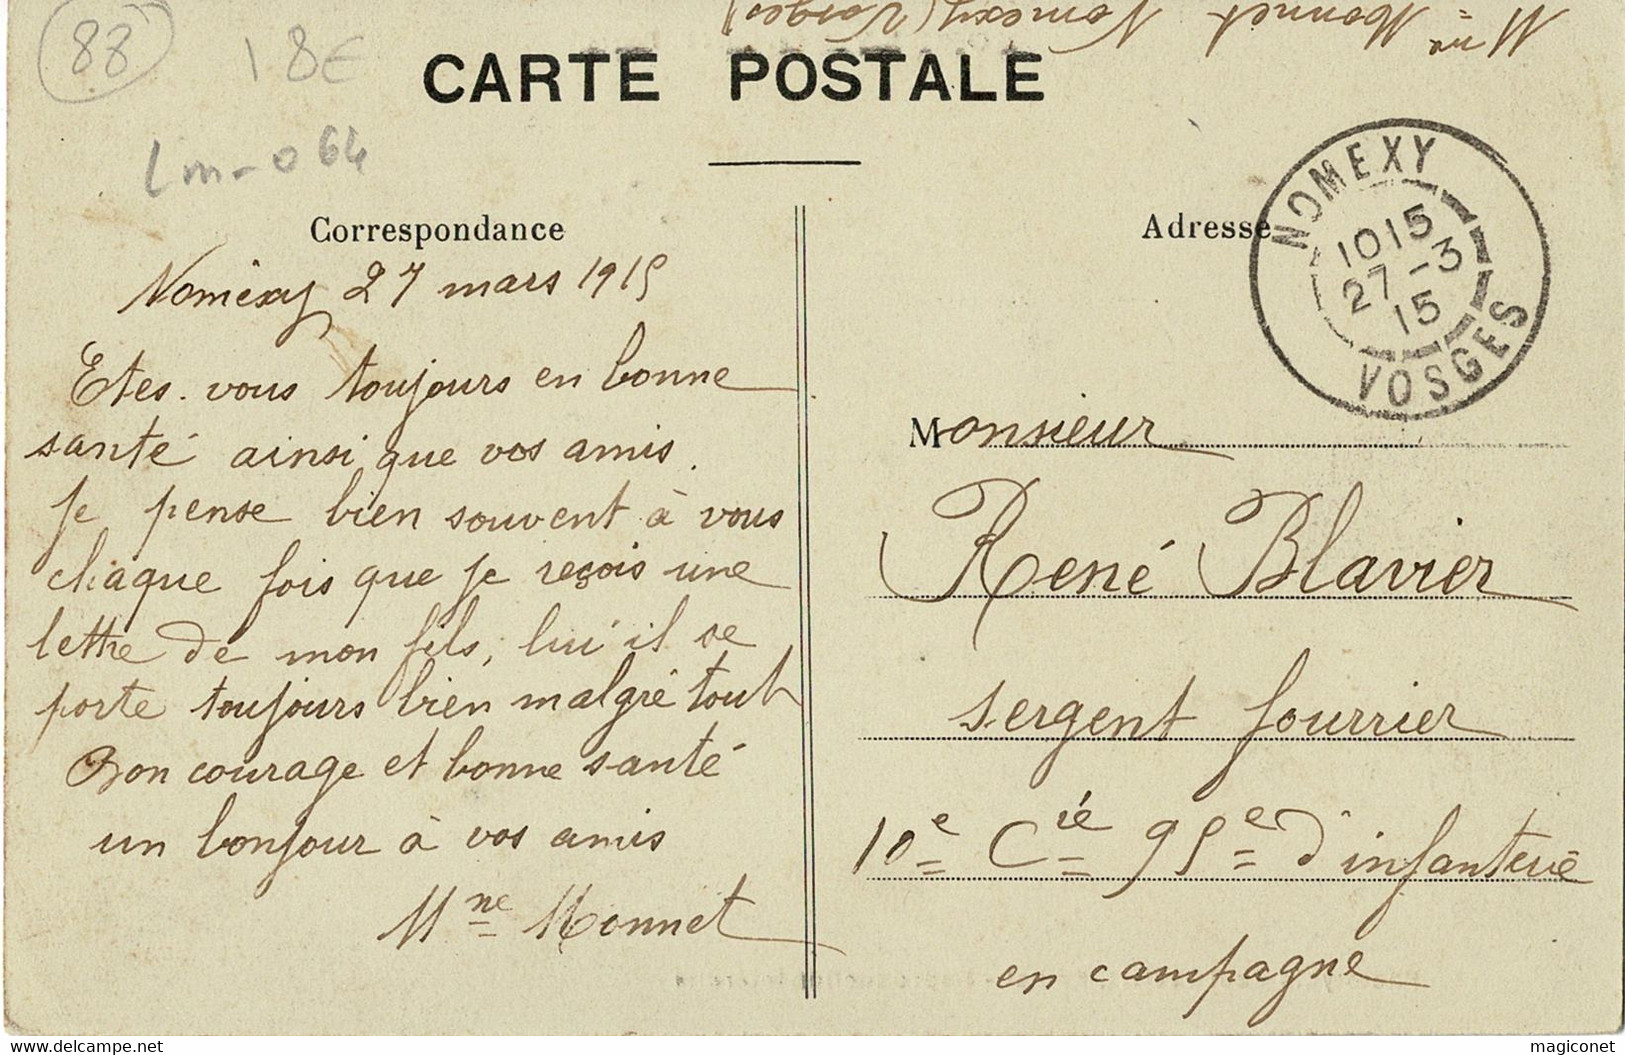 Mme Monnet Nomexy (Vosges)
88
18€
Lm-064
CARTE POSTALE
Correspondance
Nomexy 27 mars 1915
Etes-vous toujours en bonne
santé ainsi que vos amis.
Je pense bien souvent à vous
chaque fois que je reçois une
lettre de mon fils, lui il se
porte toujours bien malgré tout
Bon courage et bonne santé
un bonjour à vos amis
Mme Monnet
Adresse
NOMEXY
1015
27-3
15
VOSGES
Monsieur
René Blavier
sergent fourrier
10e Cie 95e d'infanterie
en campagne
delcampe.net
magiconet